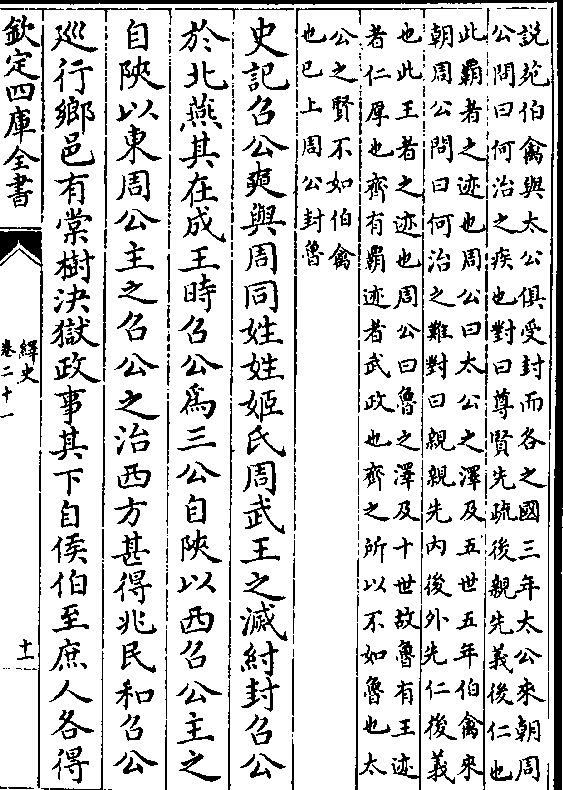 說苑伯禽與太公俱受封而各之國三年太公來朝周
公問曰何治之疾也對曰尊賢先疏後親先義後仁也
此霸者之迹也周公曰太公之澤及五世五年伯禽來
朝周公問曰何治之難對曰親親先內後外先仁後義
也此王者之迹也周公曰魯之澤及十世故魯有王迹
者仁厚也齊有霸迹者武政也齊之所以不如魯也太
公之賢不如伯禽
也已上周公封魯
史記召公奭與周同姓姓姬氏周武王之滅紂封召公
於北燕其在成王時召公爲三公自陜以西召公主之
自陜以東周公主之召公之治西方甚得兆民和召公
廵行鄉邑有棠樹決獄政事其下自侯伯至庶人各得
欽定四庫全書
繹史
卷二十一
十一